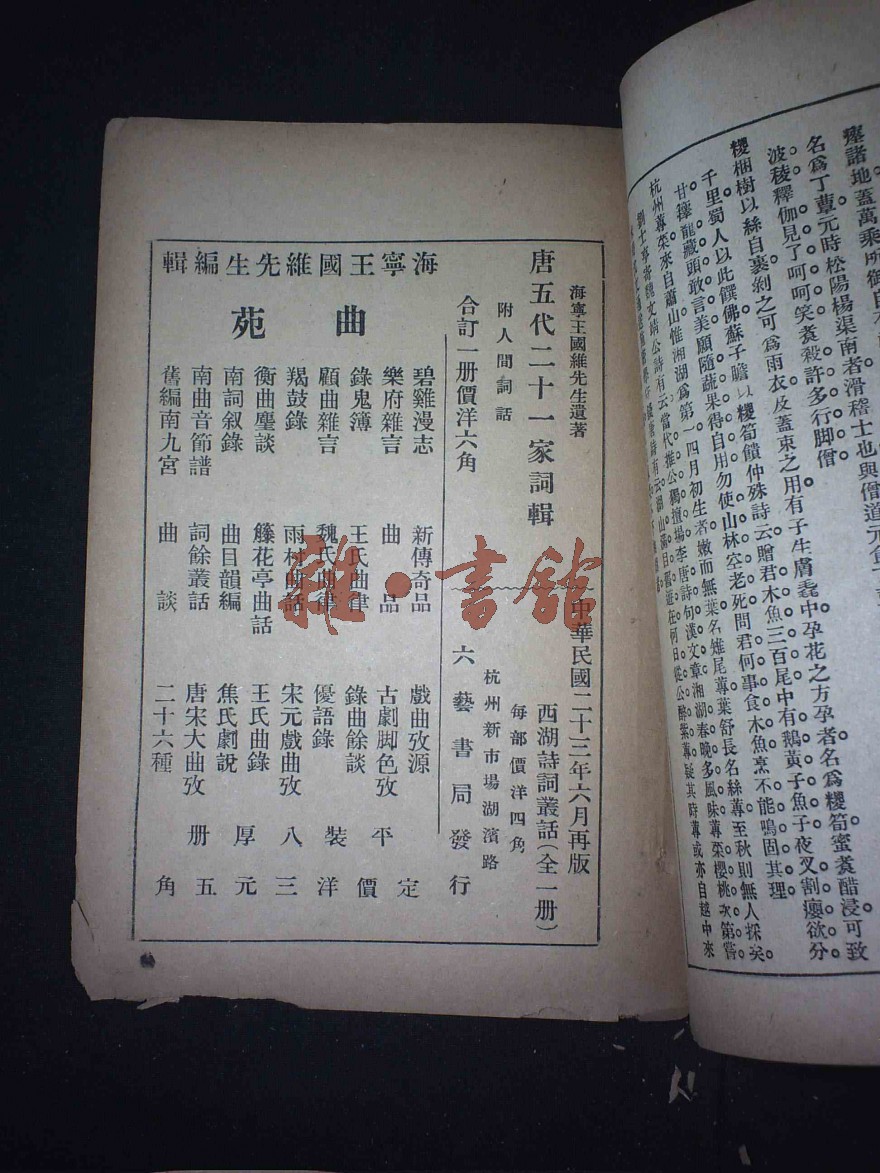 瘞諸地蓋萬乘所御
名爲丁蕈元時松陽楊渠南者滑稽士也與僧道元
波稜釋伽見了呵呵笑煑殺許多行脚僧
椶梱樹以絲自裹剝之可爲雨衣及蓋束之用有子生膚毳中孕花之方孕者名爲椶筍蜜煑醋浸可致
千里蜀人以此饌佛蘇子瞻以椶筍饋仲殊詩云贈君木魚三百尾中有鵝黃子魚子夜叉割癭欲分
甘籜龍藏頭敢言美願隨蔬果得自用勿使山林空老死問君何事食木魚烹不能鳴固其理
杭州蓴菜來自蕭山惟湘湖爲第一四月初生者嫩而無葉名雉尾蓴葉舒長名絲蓴至秋則無人採矣
海寧王國維先生遺著
唐五代二十一家詞輯
附人間詞話
合訂一册價洋六角
中華民國二十三年六月再版
西湖詩詞叢話(全一册)
每部價洋四角
杭州新市場湖濱路
六藝書局發行
海寧王國維先生編輯
曲苑
碧雞漫志 新傳奇品 戲曲攷源
樂府雜言 曲品 古劇脚色攷
錄鬼簿 王氏曲律 錄曲餘談
顧曲雜言 魏氏曲律 優語錄
羯鼓錄 雨村曲話 宋元戲曲攷
衡曲麈談 籐花亭曲話 王氏曲錄
南詞叙錄 曲目韻編 焦氏劇說
南曲音節譜 詞餘叢話 唐宋大曲攷
舊編南九宮 曲談 二十六種
平裝八厚册
定價洋三元五角
雜·書館